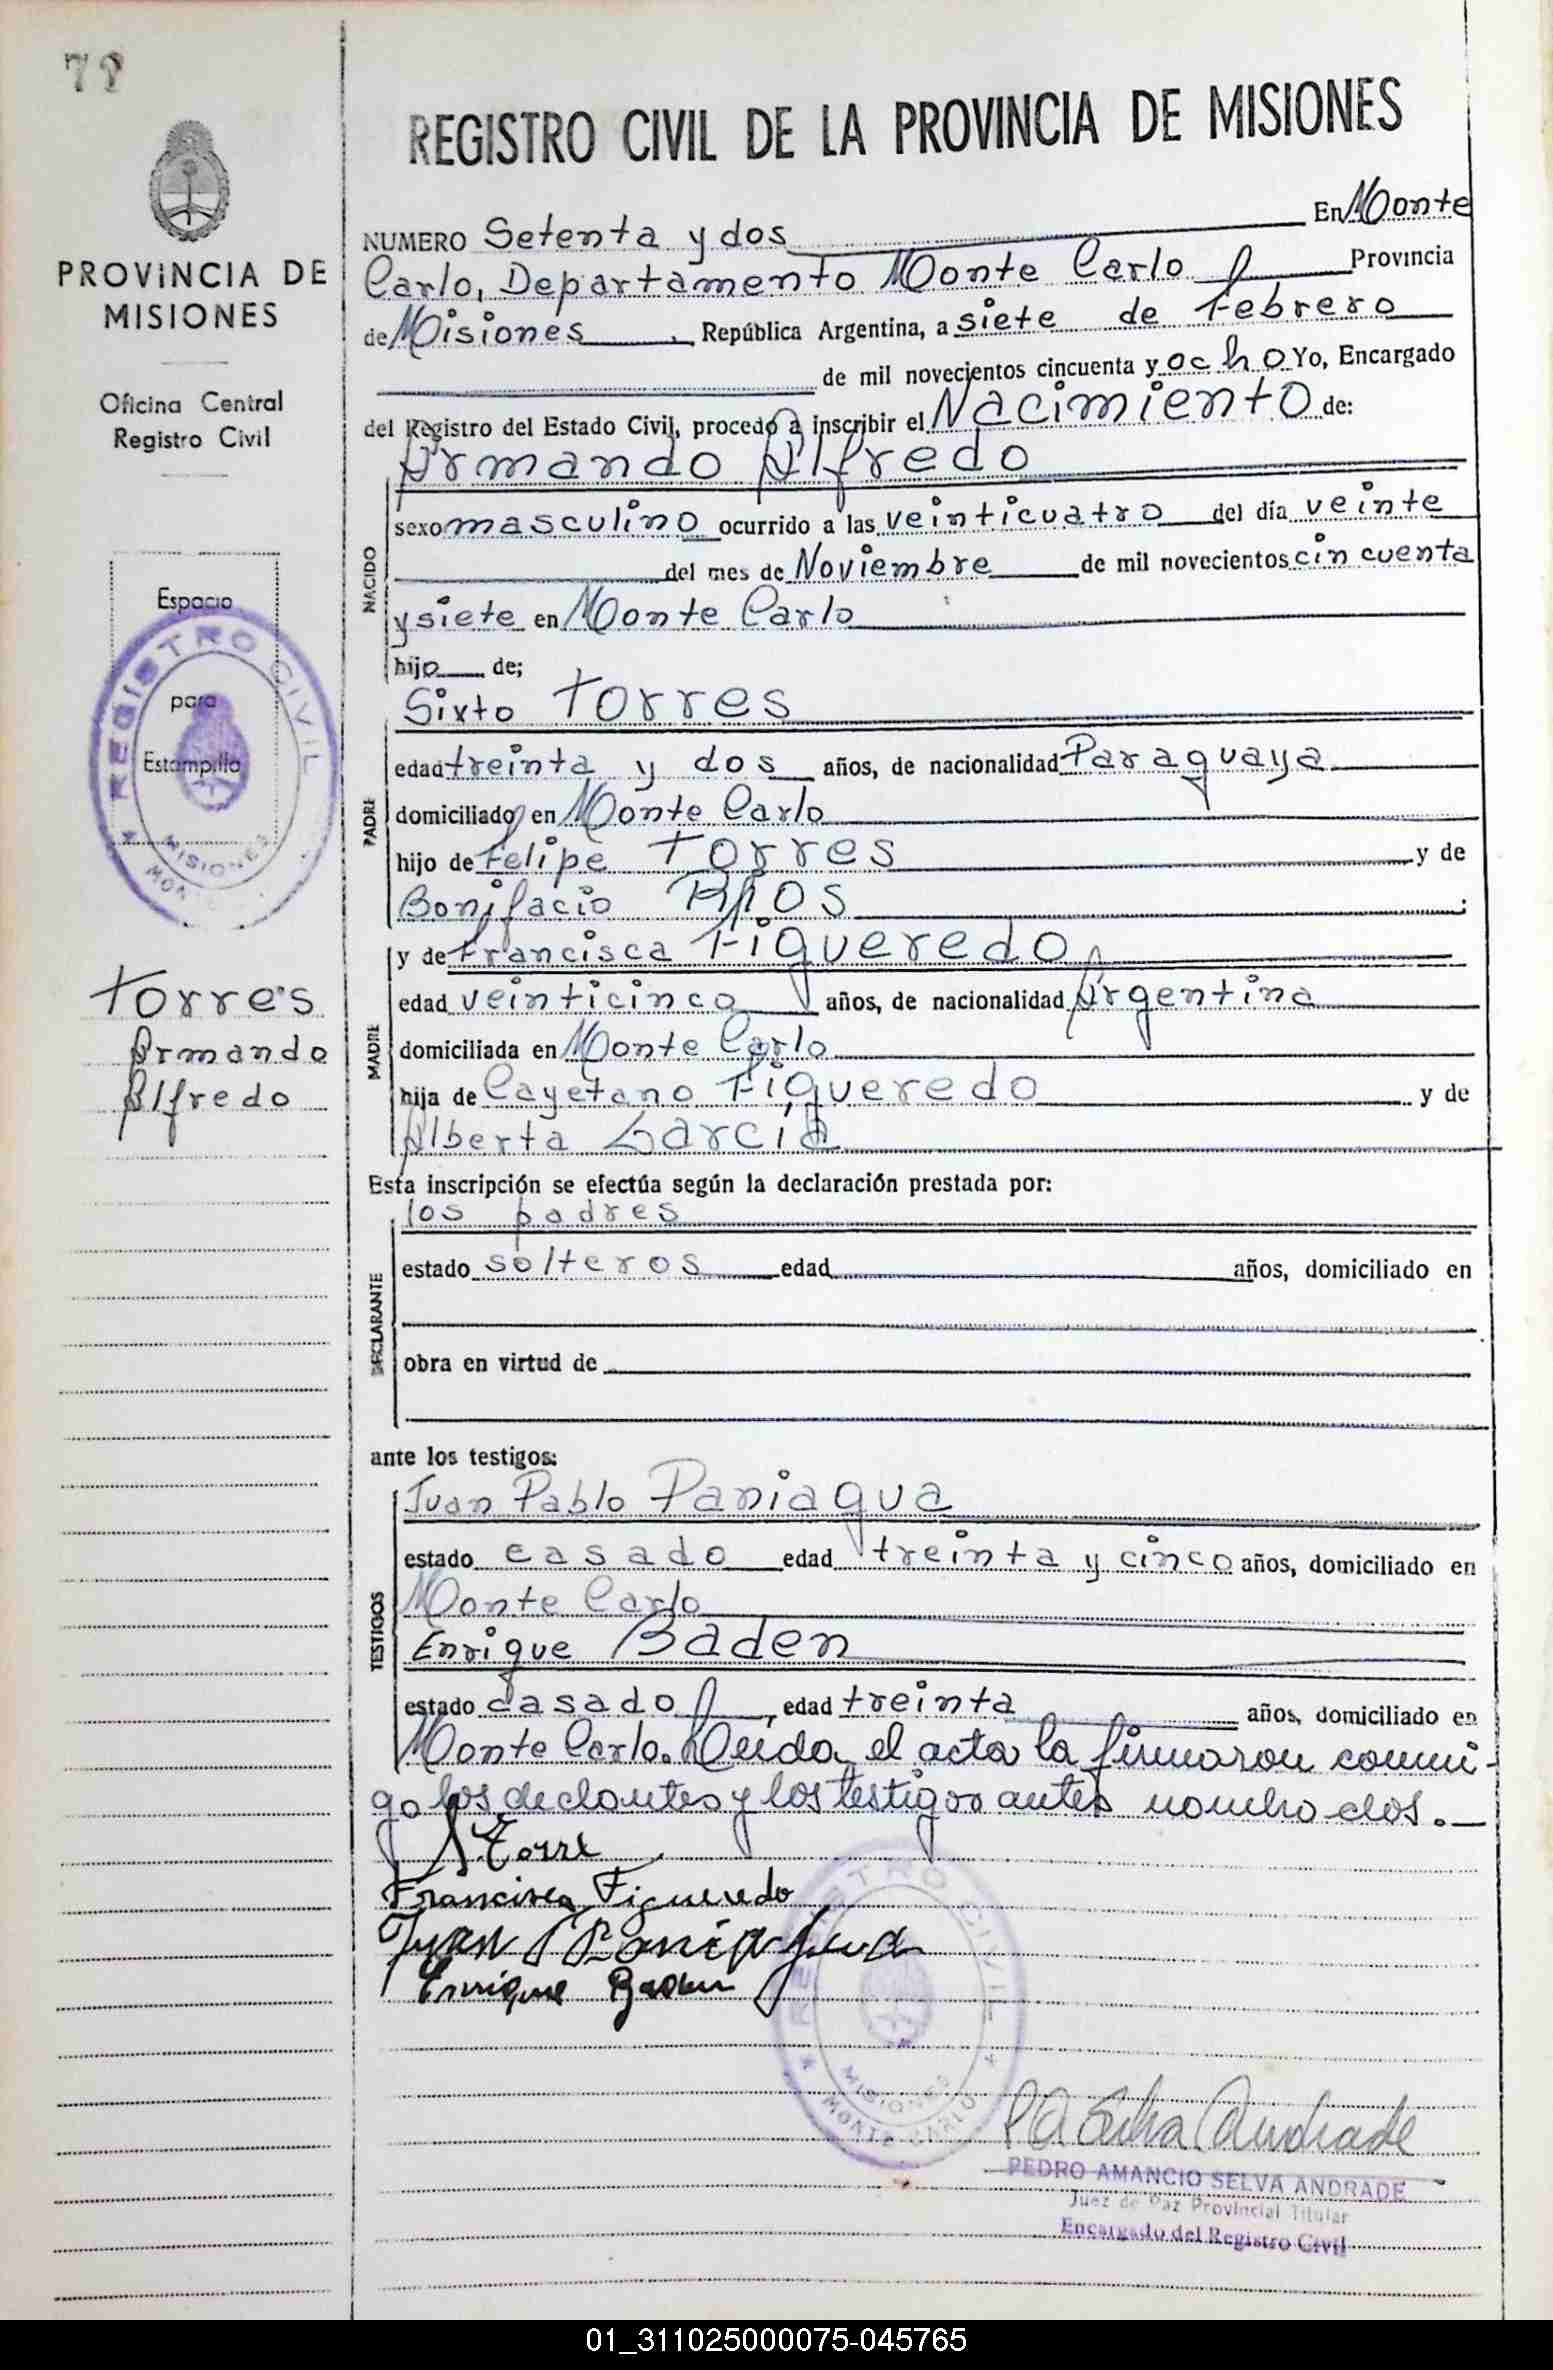 72
PROVINCIA DE
MISIONES
Oficina Central
Registro Civil
Espacio
para
Estampilla
REGISTRO CIVIL
MISIONES
MONTE
Torres
Armando
Alfredo
REGISTRO CIVIL DE LA PROVINCIA DE MISIONES
NUMERO Setenta y dos En Monte
Carlo, Departamento Monte Carlo Provincia
de Misiones, República Argentina, a siete de Febrero
de mil novecientos cincuenta y ocho Yo, Encargado
del Registro del Estado Civil, procedo a inscribir el Nacimiento de:
NACIDO
Armando Alfredo
sexo masculino ocurrido a las veinticuatro del día veinte
del mes de Noviembre de mil novecientos cincuenta
y siete en Monte Carlo
hijo de;
PADRE
Sixto Torres
edad treinta y dos años, de nacionalidad Paraguaya
domiciliado en Monte Carlo
hijo de Felipe Torres y de
Bonifacio Rios;
MADRE
y de Francisca Figueredo
edad veinticinco años, de nacionalidad Argentina
domiciliada en Monte Carlo
hija de Cayetano Figueredo y de
Alberta García
Esta inscripción se efectúa según la declaración prestada por:
DECLARANTE
los padres
estado solteros edad años, domiciliado en
obra en virtud de
ante los testigos:
TESTIGOS
Juan Pablo Paniagua
estado casado edad treinta y cinco años, domiciliado en
Monte Carlo
Enrique Baden
estado casado, edad treinta años, domiciliado en
Monte Carlo. Leida el acta la firmaron conmi-
go los declantes y los testigos antes nombrados.
S Torre
Francisca Figueredo
Juan P Paniagua
Enrique Baden
REGISTRO CIVIL
MISIONES
MONTE CARLO
P A Selva Andrade
PEDRO AMANCIO SELVA ANDRADE
Juez de Paz Provincial Titular
Encargado del Registro Civil
01_311025000075-045765